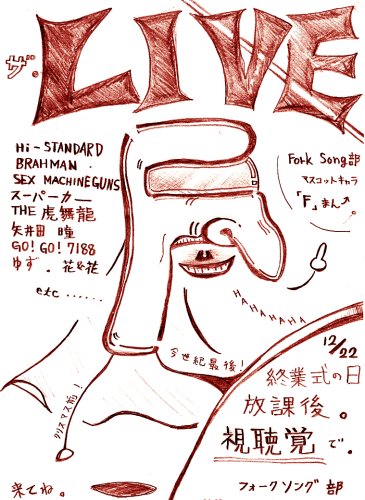 ザ・LIVE
Hi-STANDARD
BRAHMAN
SEX MACHINEGUNS
スーパーカー
THE 虎舞龍
矢井田 瞳
GO! GO! 7188
ゆず. 花*花
etc ......
Folk Song部
マスコットキャラ
「F」まん
HAHAHAHA
今世紀最後!
クリスマス前!
12/22
終業式の日
放課後。
視聴覚で。
来てね。
フォークソング部